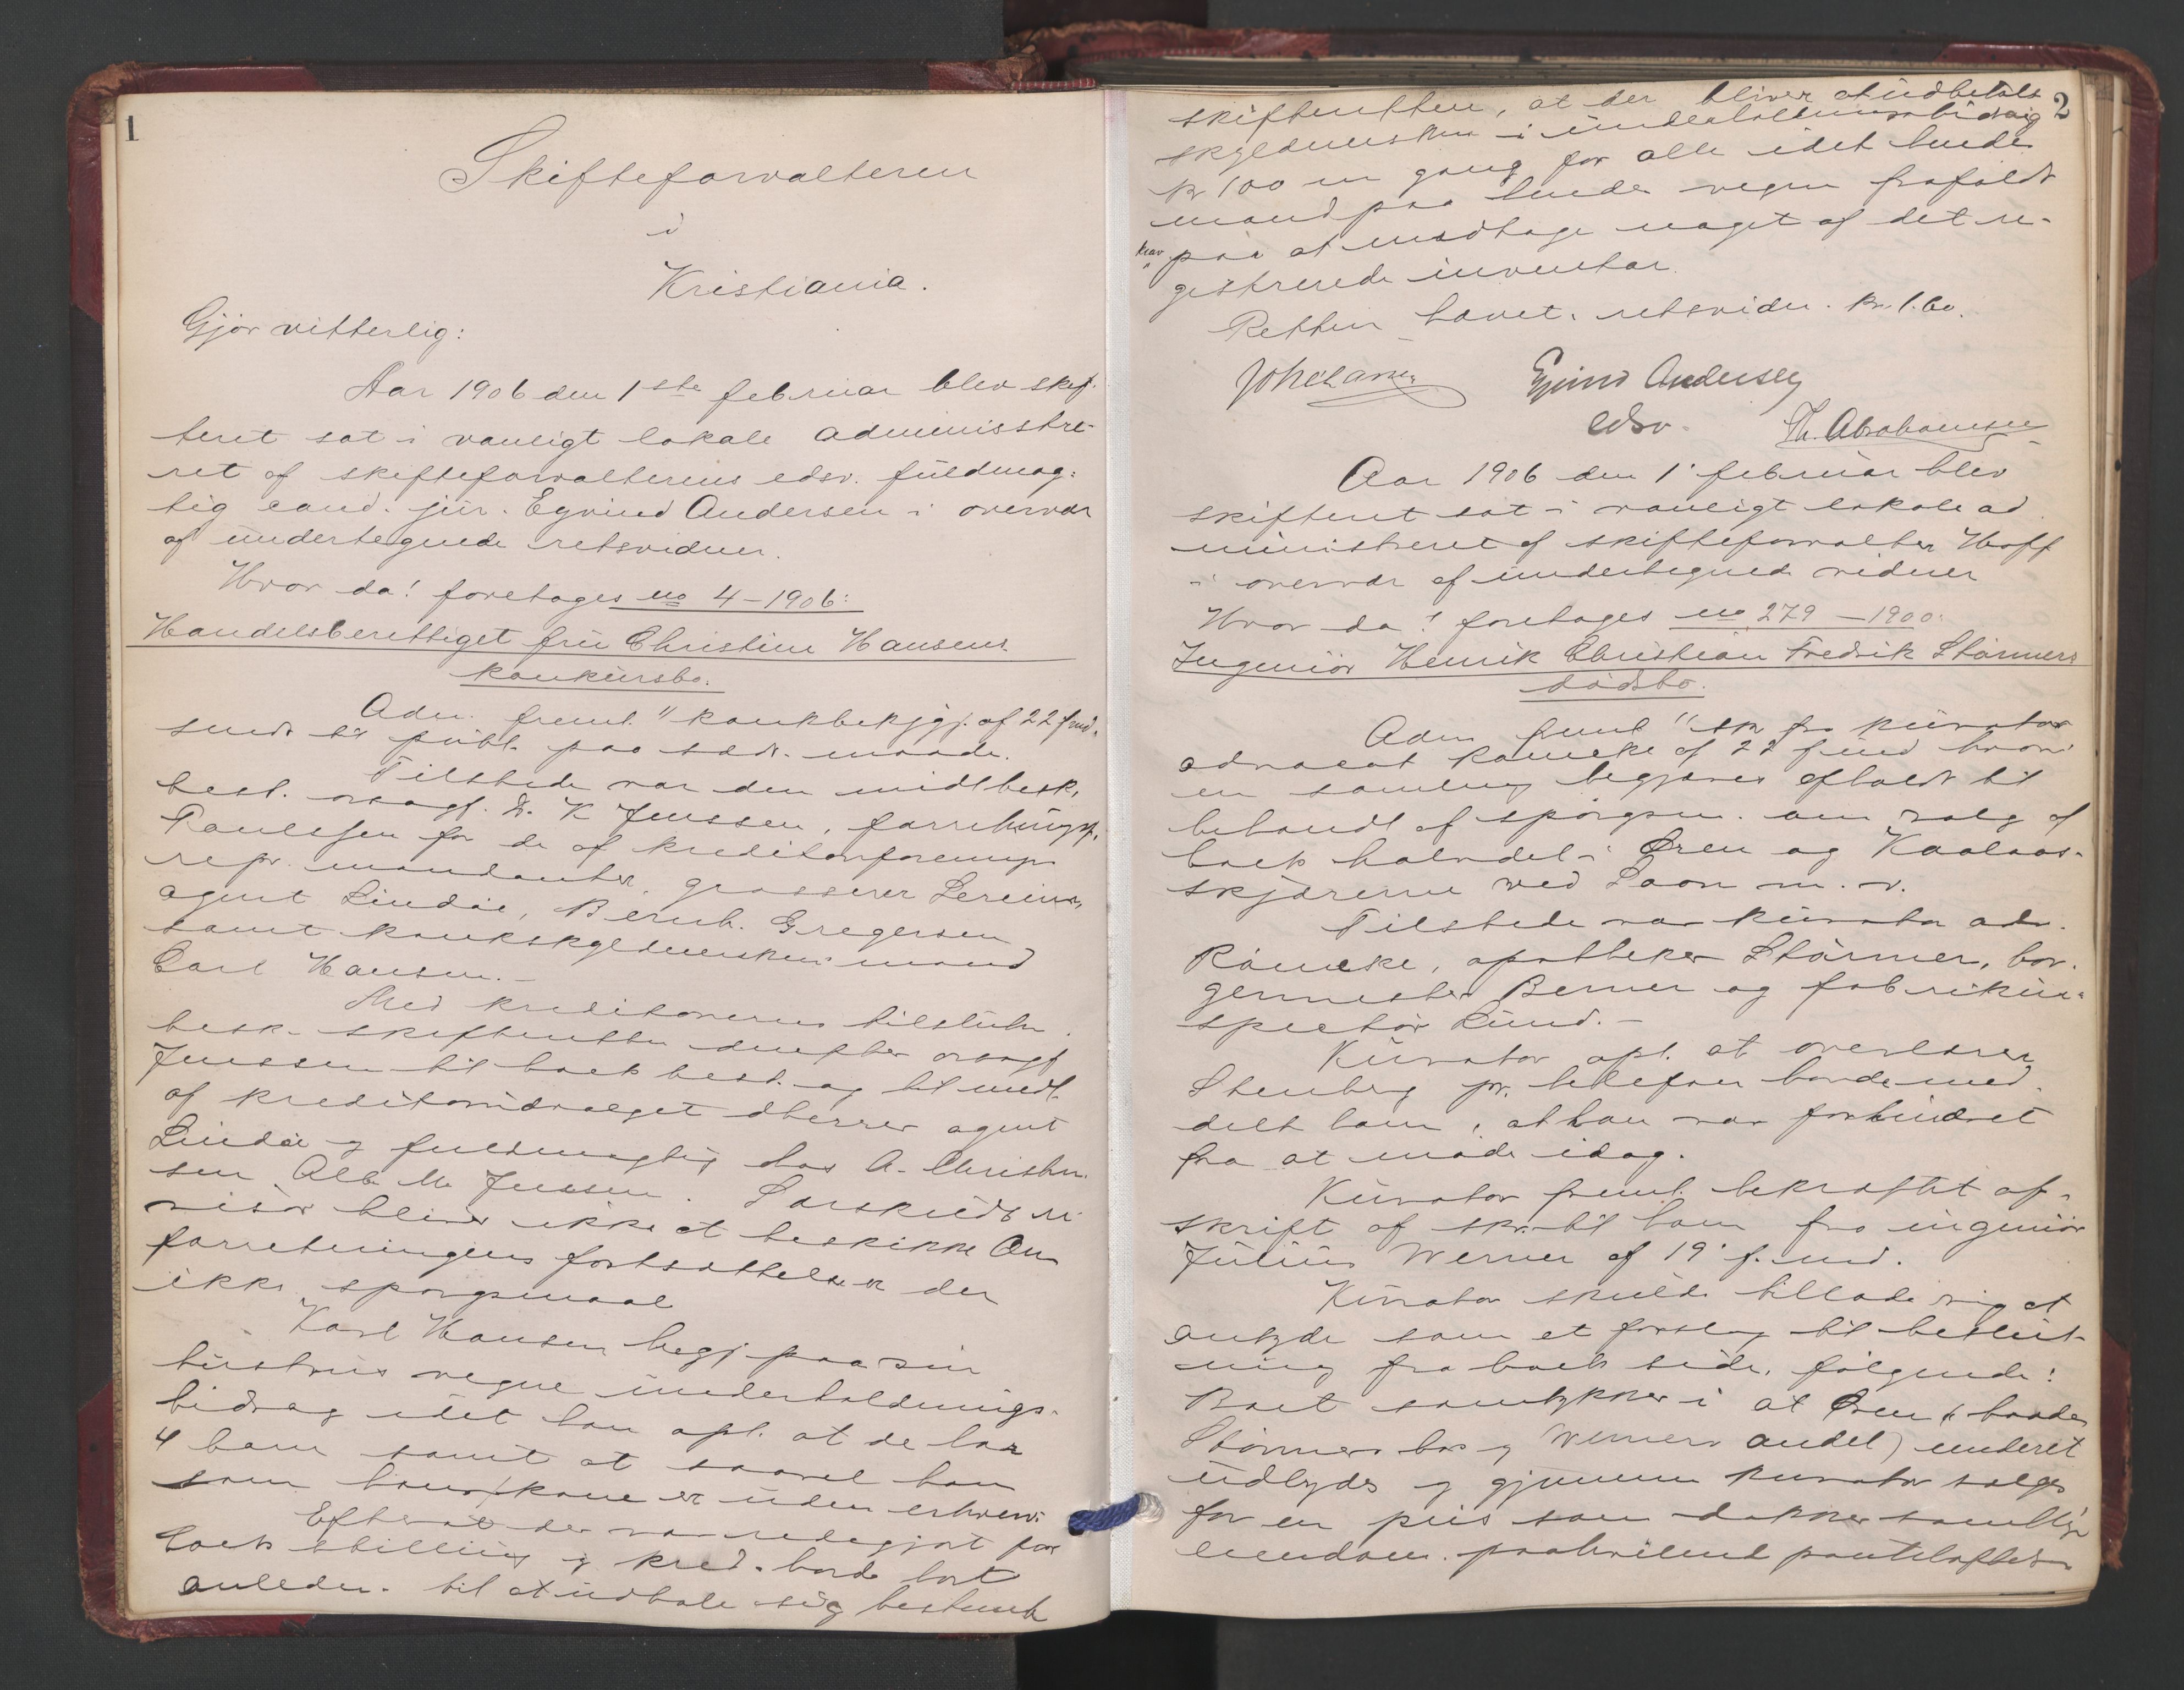 1
Skifteforvalteren
i
Kristiania.
Gjør vitterlig:
Aar 1906 den 1ste februar blev skif-
teret sat i vanligt lokale administre-
ret af skifteforvalterens edsv. fuldmæg-
tig cand. jur. Eyvind Andersen i overvær
af undertegnede retsvidner.
Hvor da! foretages no 4-1906:
Handelsberettiget fru Christine Hansens
konkursbo.
Adm. freml. konkbekjgj. af 22 f md.
sendt til publ. paa sædv. maade.
Tilstede var den midl besk.
best. orsagf. D. K Jenssen, forretningsf.
Paulssen for de af kreditorforenings
repr. mandanter, grosserer
agent Lindøe, Bernh. Gregersen
samt konkskyldnerskens mand
Carl Hansen.-
Med kreditorernes tilslutn.
besk. skifteretten derefter orsagf
Jenssen til boets best. og til medl.
af kreditorudvalget dherrer agent
Lindøe og fuldmægtig hos A. Christen-
sen Alb. M. Jenssen. Særskildt re-
visor bliver ikke at beskikke Om
forretningens fortsættelse er der
ikke spørgsmaal
Karl Hansen begj paa sin
hustrus vegne underholdnings-
bidrag idet han opl. at de har
4 barn samt at saavel han
som hans kone er uden erhverv.
Efterat der var redegjort for
boets stilling og kred. havde havt
anledn. til at udtale sig bestemte
2
skifteretten, at der bliver at udbetale
skyldnersken i underholdningsbidrag
kr 100 en gang for alle idet hendes
mand paa hendes vegne frafaldt
krav paa at modtage noget af det re-
gistrerede inventar.
Retten hævet. retsvidn. kr. 1.60.
Joh Larsen Eyvind Andersen
edsv. Th. Abrahamsen
Aar 1906 den 1' februar blev
skifteret sat i vanligt lokale ad
ministreret af skifteforvalter Hoff
i overvær af undertegnede vidner
Hvor da! foretages no 279-1900:
Ingeniør Henrik Christian Fredrik Størmers
dødsbo.
Adm freml skr fra kurator
advocat Rømcke af 22 f md hvori
en samling begjæres afholdt til
behandl af spørgsm. om salg af
boets halvdel i Øren og Kaalaas-
skjærerne ved Saon m. v.
Tilstede var kurator adv.
Rømcke, apotheker Størmer, bor-
germester Berner og fabrikin-
spectør Lund.-
Kurator opl. at overlærer
Stenberg pr. telefon havde med-
delt ham, at han var forhindret
fra at møde idag.
Kurator freml. bekræftet af-
skrift af skr. til ham fra ingeniør
Julius Werner af 19' f. md.
Kurator skulde tillade sig at
antyde som et forslag til beslut-
ning fra boets side, følgende:
Boet samtykker i at Øren (baade
Størmers bos og Werners andel) underet
udbydes og gjennem kurator sælges
for en pris som dækker samtlige
eiendom. paahvilende pantehæftelser